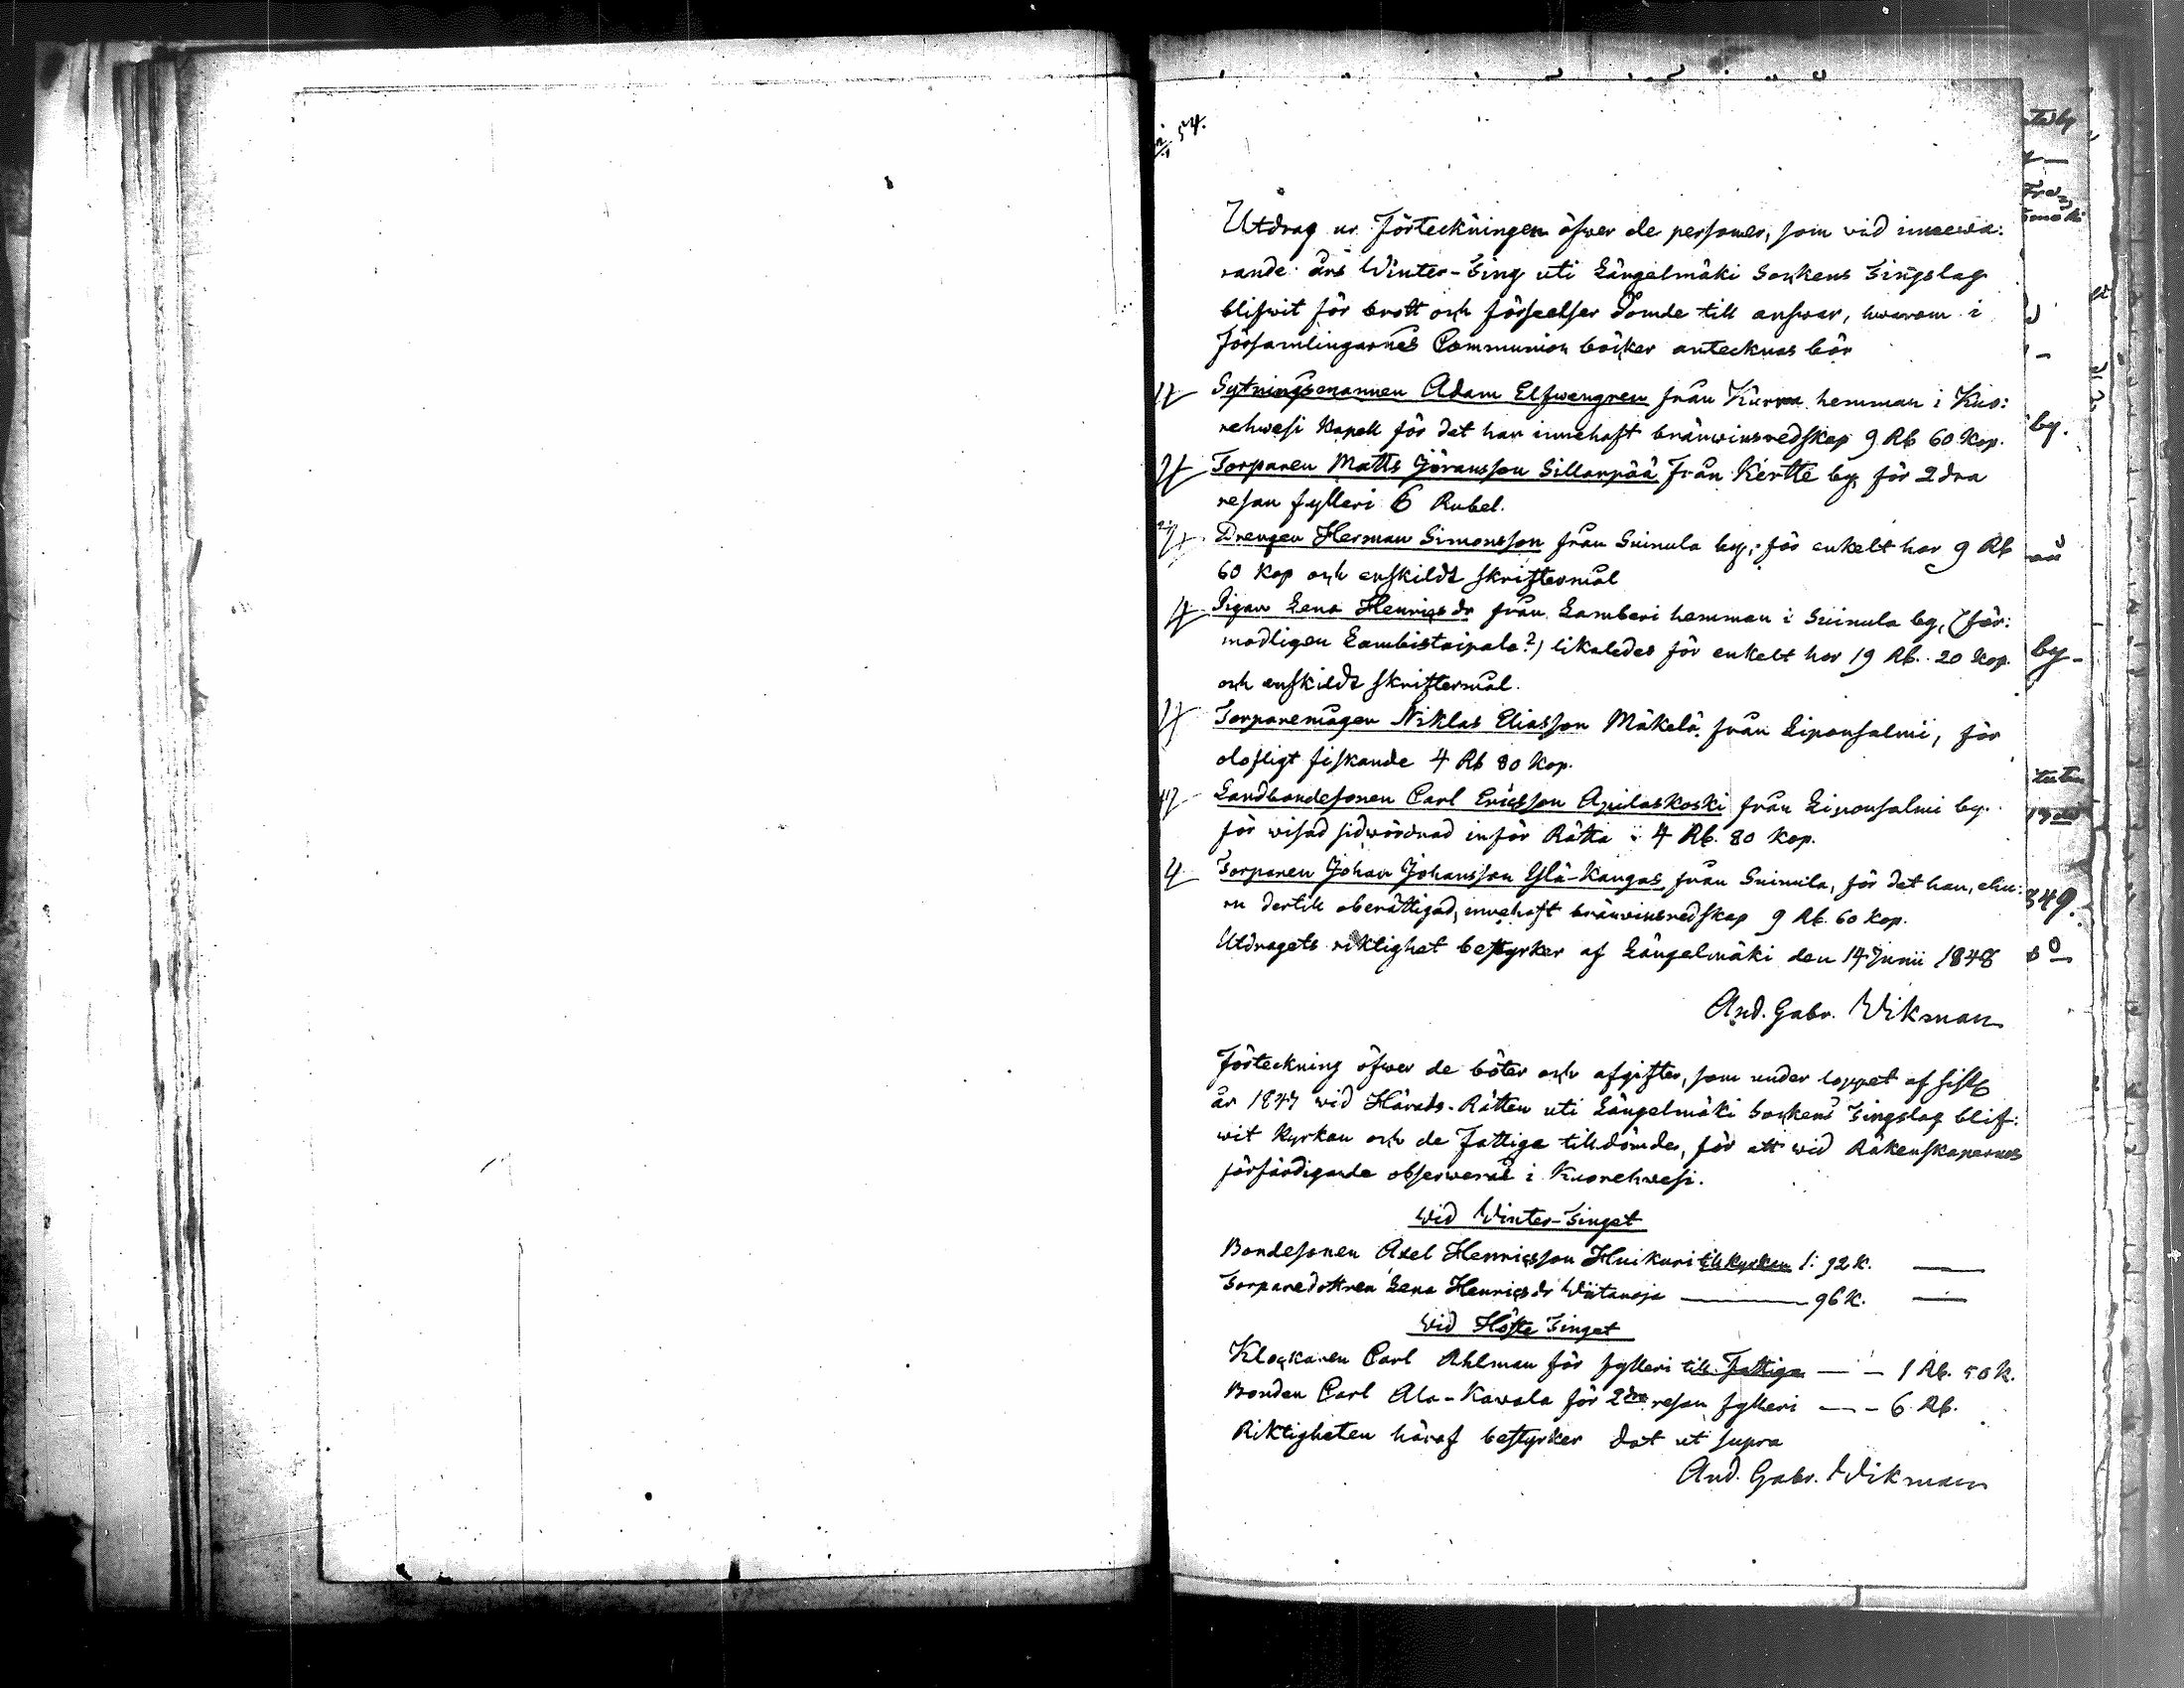 54.
Utdrag ur Förteckningen öfwer de personer, som vid innewa:
rande års Winter-Ting uti Längelmäki Sockens Tingslag
blifwit för brott och förseelser dömde till answar, hwarom i
Församlingarnes Communion böcker antecknas bör
Sytningsmannen Adam Elfwengren från Kurra hemman i Kuo:
rehwesi Kapell för det han innehaft bränwinsredskap 9 Rb 60 Kop.
Torparen Matts Jöransson Sillanpää från Kerttè by, för 2dra
resan fylleri 6 Rubel.
Drengen Herman Simonsson från Suinula by, för enkelt hor 9 Rb
60 Kop och enskildt skriftermål
Pigan Lena Henriqsdr från Lamberi hemman i Suinula by, (för:
modligen Lambistaipale?) likaledes för enkelt hor 19 Rb. 20 Kop.
och enskildt skriftermål.
Torparemågen Niklas Eliasson Mäkelä från Liponsalmi, för
olofligt fiskande 4 Rb 80 Kop.
Landbondesonen Carl Ericsson Apilaskoski från Liponsalmi by.
för wisad sidwördnad inför Rätta 4 Rb. 80 Kop.
Torparen Johan Johansson Ylä-Kangas från Suinula, för det han, ehu:
ru dertill oberättigad, innehaft bränwinsredskap 9 Rb. 60 Kop.
Utdragets riktighet bestyrker af Längelmäki den 14 Junii 1848
And. Gabr. Wikman
Förteckning öfwer de böter och afgifter, som under loppet af sistl.
år 1847 wid Härads-Rätten uti Längelmäki Sockens Tingslag blif:
wit Kyrkan och de Fattige tilldömde, för att wid Räkenskapernes
förfärdigande observeras i Kuorehwesi.
Wid Winter-Tinget
Bondesonen Axel Henriqsson Huikuri till kyrkan 1: 92 K.
Torparedottren Lena Henriqsdr Wiitanoja 96 K.
Wid Höste Tinget
Klockaren Carl Ahlman för fylleri till Fattige 1 Rb. 50 K.
Bonden Carl Ala-Kawala för 2dra resan fylleri 6 Rb.
Riktigheten häraf bestyrker dat ut supra
And. Gabr. Wikman
by.
by